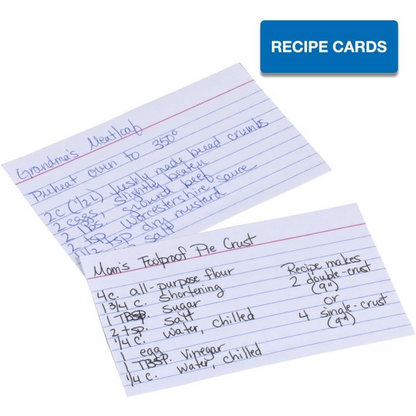 RECIPE CARDS
Grandma's Meatloaf
Preheat oven to 350°
2 c (1/2 L) freshly made bread crumbs
2 eggs, slightly beaten
2 lbs. ground beef
2 Tsp Worcestershire sauce
1 1/2 tsp dry mustard
salt
Mom's Foolproof Pie Crust
4 c. all-purpose flour
1 3/4 c. shortening
1 TBSP. sugar
2 tsp. salt
1/4 c. water, chilled
1 egg
1 TBSP. vinegar
1/4 c. water, chilled
Recipe makes
2 double-crust
(9")
or
4 single-crust
(9")